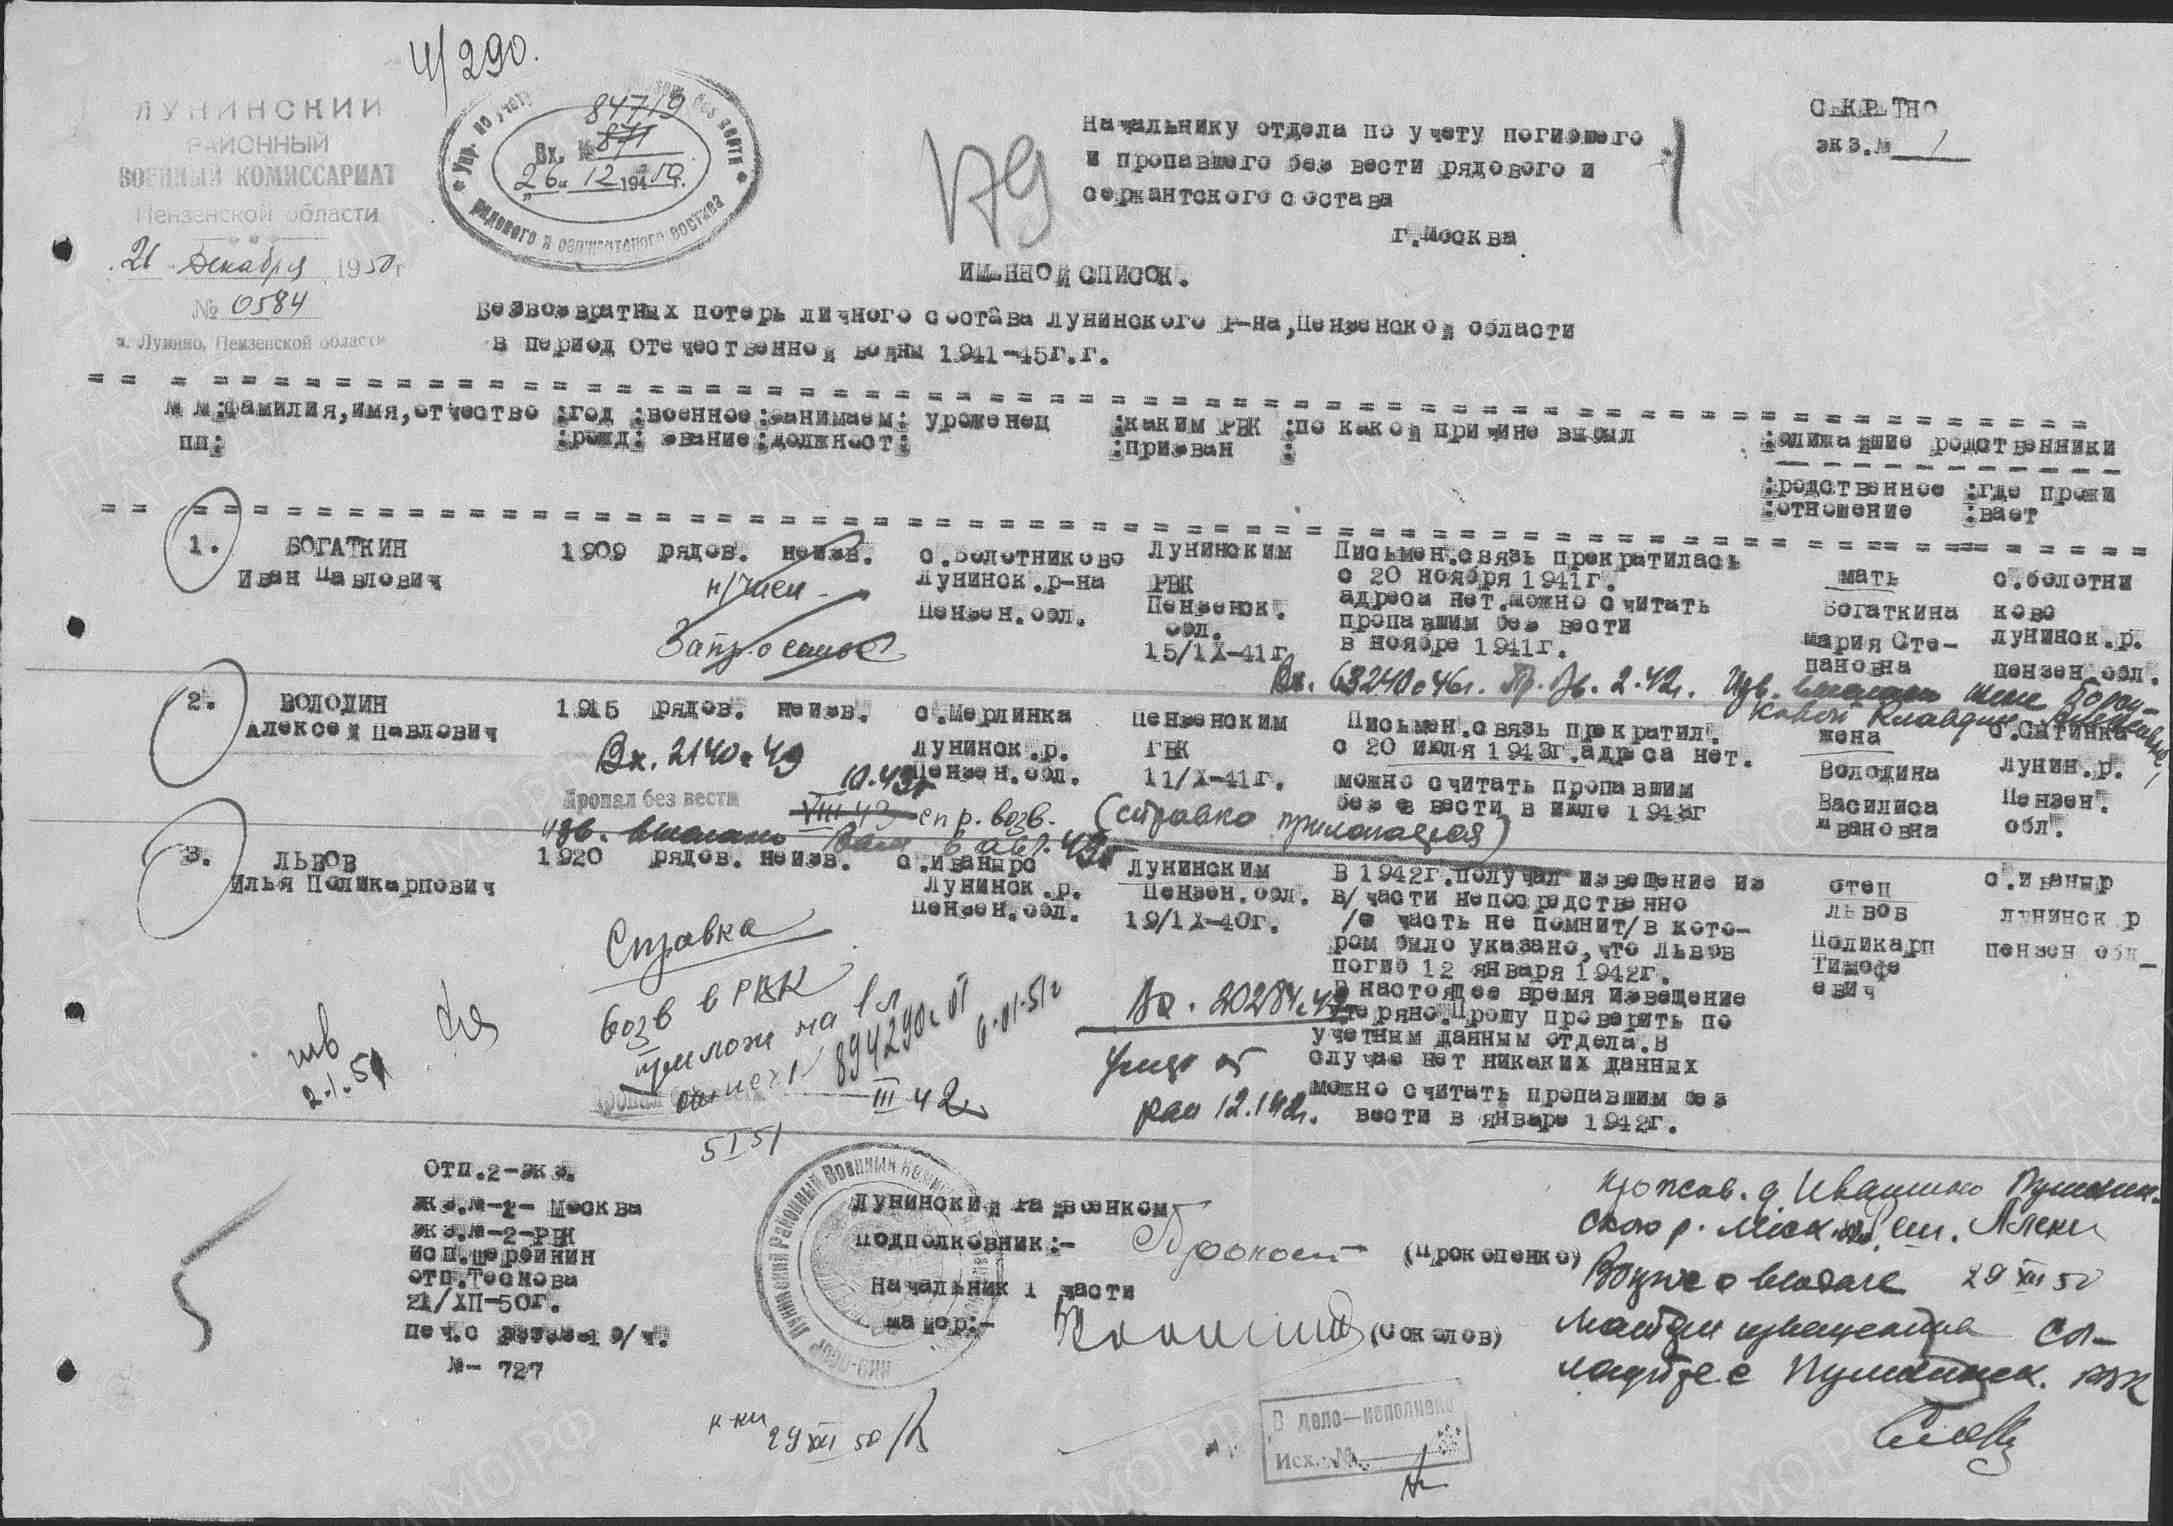 4/290.
ЛУНИНСКИЙ
РАЙОННЫЙ
ВОЕННЫЙ КОМИССАРИАТ
Пензенской области
26 декабря 1950 г
№ 0584
п. Лунино, Пензенской области
Упр. по учету без вести
847/9
Вх. № 871
26 12 1950 г.
рядового и сержантского состава
Начальнику отдела по учету погибшего
и пропавшего без вести рядового и
сержантского состава
г.Москва
СЕКРЕТНО
экз.№ 1
ИМЕННОЙ СПИСОК.
Безвозвратных потерь личного состава Лунинского р-на,Пензенской области
в период Отечественной войны 1941-45г.г.
№ №:фамилия,имя,отчество :год :военное:занимаем: уроженец :каким РВК :по какой причине выбыл :ближайшие родственники
пп: :рожд: звание:должност: :призван :
:родственное :где прожи
:отношение :вает
1. БОГАТКИН 1909 рядов. неизв. с.Болотниково Лунинским Письмен.связь прекратилась мать с.болотни
Иван Павлович Лунинск.р-на РВК с 20 ноября 1941г. Богаткина ково
Пензен.обл. Пензенск. адреса нет.можно считать Мария Сте- лунинск.р.
обл. пропавшим без вести пановна пензен.обл.
15/IX-41г в ноябре 1941г.
Вх. 63240с46г. Пр. Зв. 2.42г. Изв.
2. ВОЛОДИН 1915 рядов. неизв. с.Мерлинка Пензенским Письмен.связь прекратил. жена с.Сытинка
Алексей Павлович Лунинск.р. ГВК с 20 июля 1943г.адреса нет. Володина лунин.р.
Пензен.обл. 11/X-41г. можно считать пропавшим Василиса Пензен.
без в вести в июле 1943г Ивановна обл.
Вх. 2140с49
10.43г
Пропал без вести
VIII 43 спр. возв. (справка прилагается)
3. ЛЬВОВ 1920 рядов. неизв. с.иваныро Лунинским В 1942г.получал извещение из отец с.иваныр
Илья Поликарпович Лунинск.р. Пензен.обл. в/части непосредственно львов лунинск р
Пензен.обл. 19/IX-40г. /е часть не помнит/в кото- Поликарп пензен обл-
ром было указано,что Львов Тимофе
погиб 12 января 1942г. евич
В настоящее время извещение
утеряно.Прошу проверить по
учетным данным отдела.В
случае нет никаких данных
можно считать пропавшим без
вести в январе 1942г.
Справка
возв в РВК
прилож на 1 л
III 42
6.01.51г
5 I 51
2.1.51
Вх. 20284с42
ран 12.1.42г.
Отп.2-экз.
экз.№-1- Москва
экз.№-2-РВК
исп.Шербинин
отп.Тесмова
21/XII-50г.
№- 727
Лунинский Райвоенком
Подполковник:- (Прокопенко)
Начальник 1 части
майор:- (Соколов)
29 XII 50
29 XII 50
В дело—исполнено
Исх. №